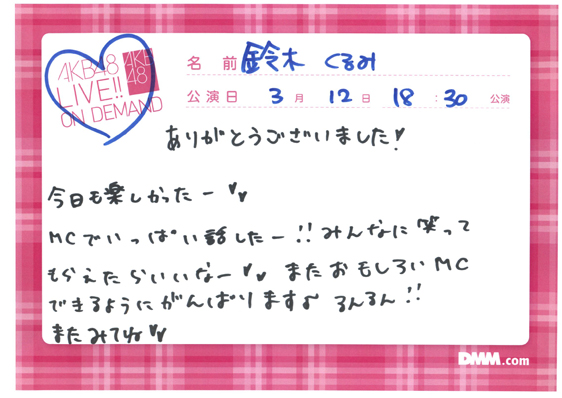 AKB48
LIVE!!
ON DEMAND
AKB
48
名 前 鈴木 くるみ
公演日 3月 12日 18:30 公演
ありがとうございました!
今日も楽しかったー
MCでいっぱい話したー!!みんなに笑って
もらえたらいいなー またおもしろいMC
できるようにがんばります♪ るんるん!!
またみてね
DMM.com